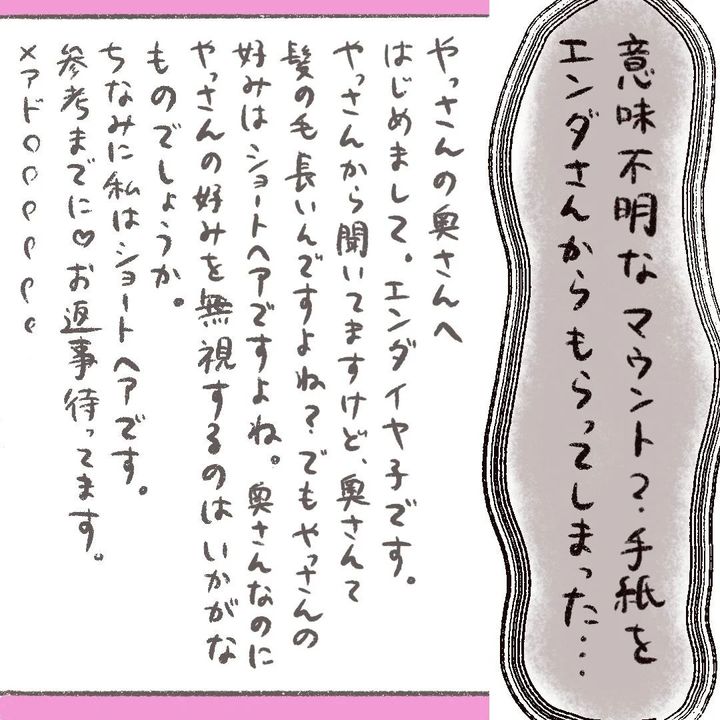 意味不明なマウント？手紙を
エンダさんからもらってしまった…
やっさんの奥さんへ
はじめまして。エンダイヤ子です。
やっさんから聞いてますけど、奥さんて
髪の毛長いんですよね？でもやっさんの
好みはショートヘアですよね。奥さんなのに
やっさんの好みを無視するのはいかがな
ものでしょうか。
ちなみに私はショートヘアです。
参考までに♡お返事待ってます。
×アド